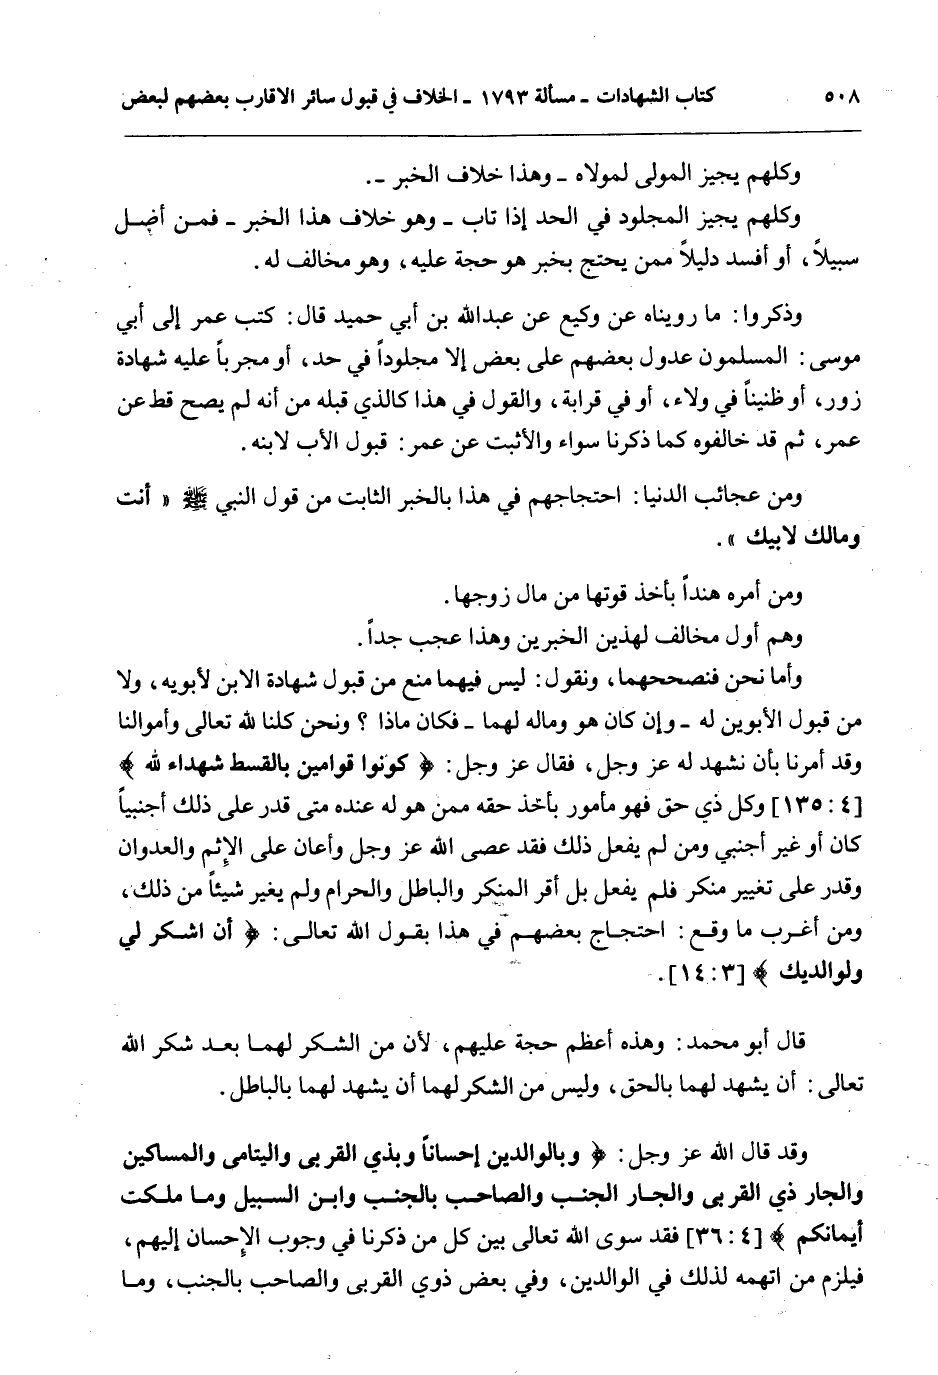 ٥٠٨ كتاب الشهادات ـ مسألة ١٧٩٣ ـ الخلاف في قبول سائر الاقارب بعضهم لبعض
وكلهم يجيز المولى لمولاه ـ وهذا خلاف الخبر ـ.
وكلهم يجيز المجلود في الحد إذا تاب ـ وهو خلاف هذا الخبر ـ فمن أضل
سبيلاً، أو أفسد دليلاً ممن يحتج بخبر هو حجة عليه، وهو مخالف له.
وذكروا: ما رويناه عن وكيع عن عبدالله بن أبي حميد قال: كتب عمر إلى أبي
موسى: المسلمون عدول بعضهم على بعض إلا مجلوداً في حد، أو مجرباً عليه شهادة
زور، أو ظنيناً في ولاء، أو في قرابة، والقول في هذا كالذي قبله من أنه لم يصح قط عن
عمر، ثم قد خالفوه كما ذكرنا سواء والأثبت عن عمر: قبول الأب لابنه.
ومن عجائب الدنيا: احتجاجهم في هذا بالخبر الثابت من قول النبي ﷺ « أنت
ومالك لابيك ».
ومن أمره هنداً بأخذ قوتها من مال زوجها.
وهم أول مخالف لهذين الخبرين وهذا عجب جداً.
وأما نحن فنصححهما، ونقول: ليس فيهما منع من قبول شهادة الابن لأبويه، ولا
من قبول الأبوين له ـ وإن كان هو وماله لهما ـ فكان ماذا ؟ ونحن كلنا لله تعالى وأموالنا
وقد أمرنا بأن نشهد له عز وجل، فقال عز وجل: ﴿ كونوا قوامين بالقسط شهداء لله ﴾
[٤: ١٣٥] وكل ذي حق فهو مأمور بأخذ حقه ممن هو له عنده متى قدر على ذلك أجنبياً
كان أو غير أجنبي ومن لم يفعل ذلك فقد عصى الله عز وجل وأعان على الإثم والعدوان
وقدر على تغيير منكر فلم يفعل بل أقر المنكر والباطل والحرام ولم يغير شيئاً من ذلك،
ومن أغرب ما وقع: احتجاج بعضهم في هذا بقول الله تعالى: ﴿ أن اشكر لي
ولوالديك ﴾ [٣: ١٤].
قال أبو محمد: وهذه أعظم حجة عليهم، لأن من الشكر لهما بعد شكر الله
تعالى: أن يشهد لهما بالحق، وليس من الشكر لهما أن يشهد لهما بالباطل.
وقد قال الله عز وجل: ﴿ وبالوالدين إحساناً وبذي القربى واليتامى والمساكين
والجار ذي القربى والجار الجنب والصاحب بالجنب وابن السبيل وما ملكت
أيمانكم ﴾ [٤: ٣٦] فقد سوى الله تعالى بين كل من ذكرنا في وجوب الإحسان إليهم،
فيلزم من اتهمه لذلك في الوالدين، وفي بعض ذوي القربى والصاحب بالجنب، وما